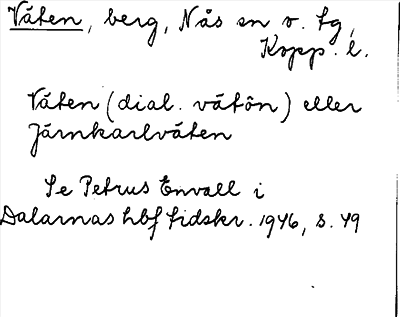 Våten, berg, Nås sn o. tg,
Kopp. l.
Våten (dial. våtôn) eller
Järnkarlvåten
Se Petrus Envall i
Dalarnas hbf tidskr. 1946, s. 49